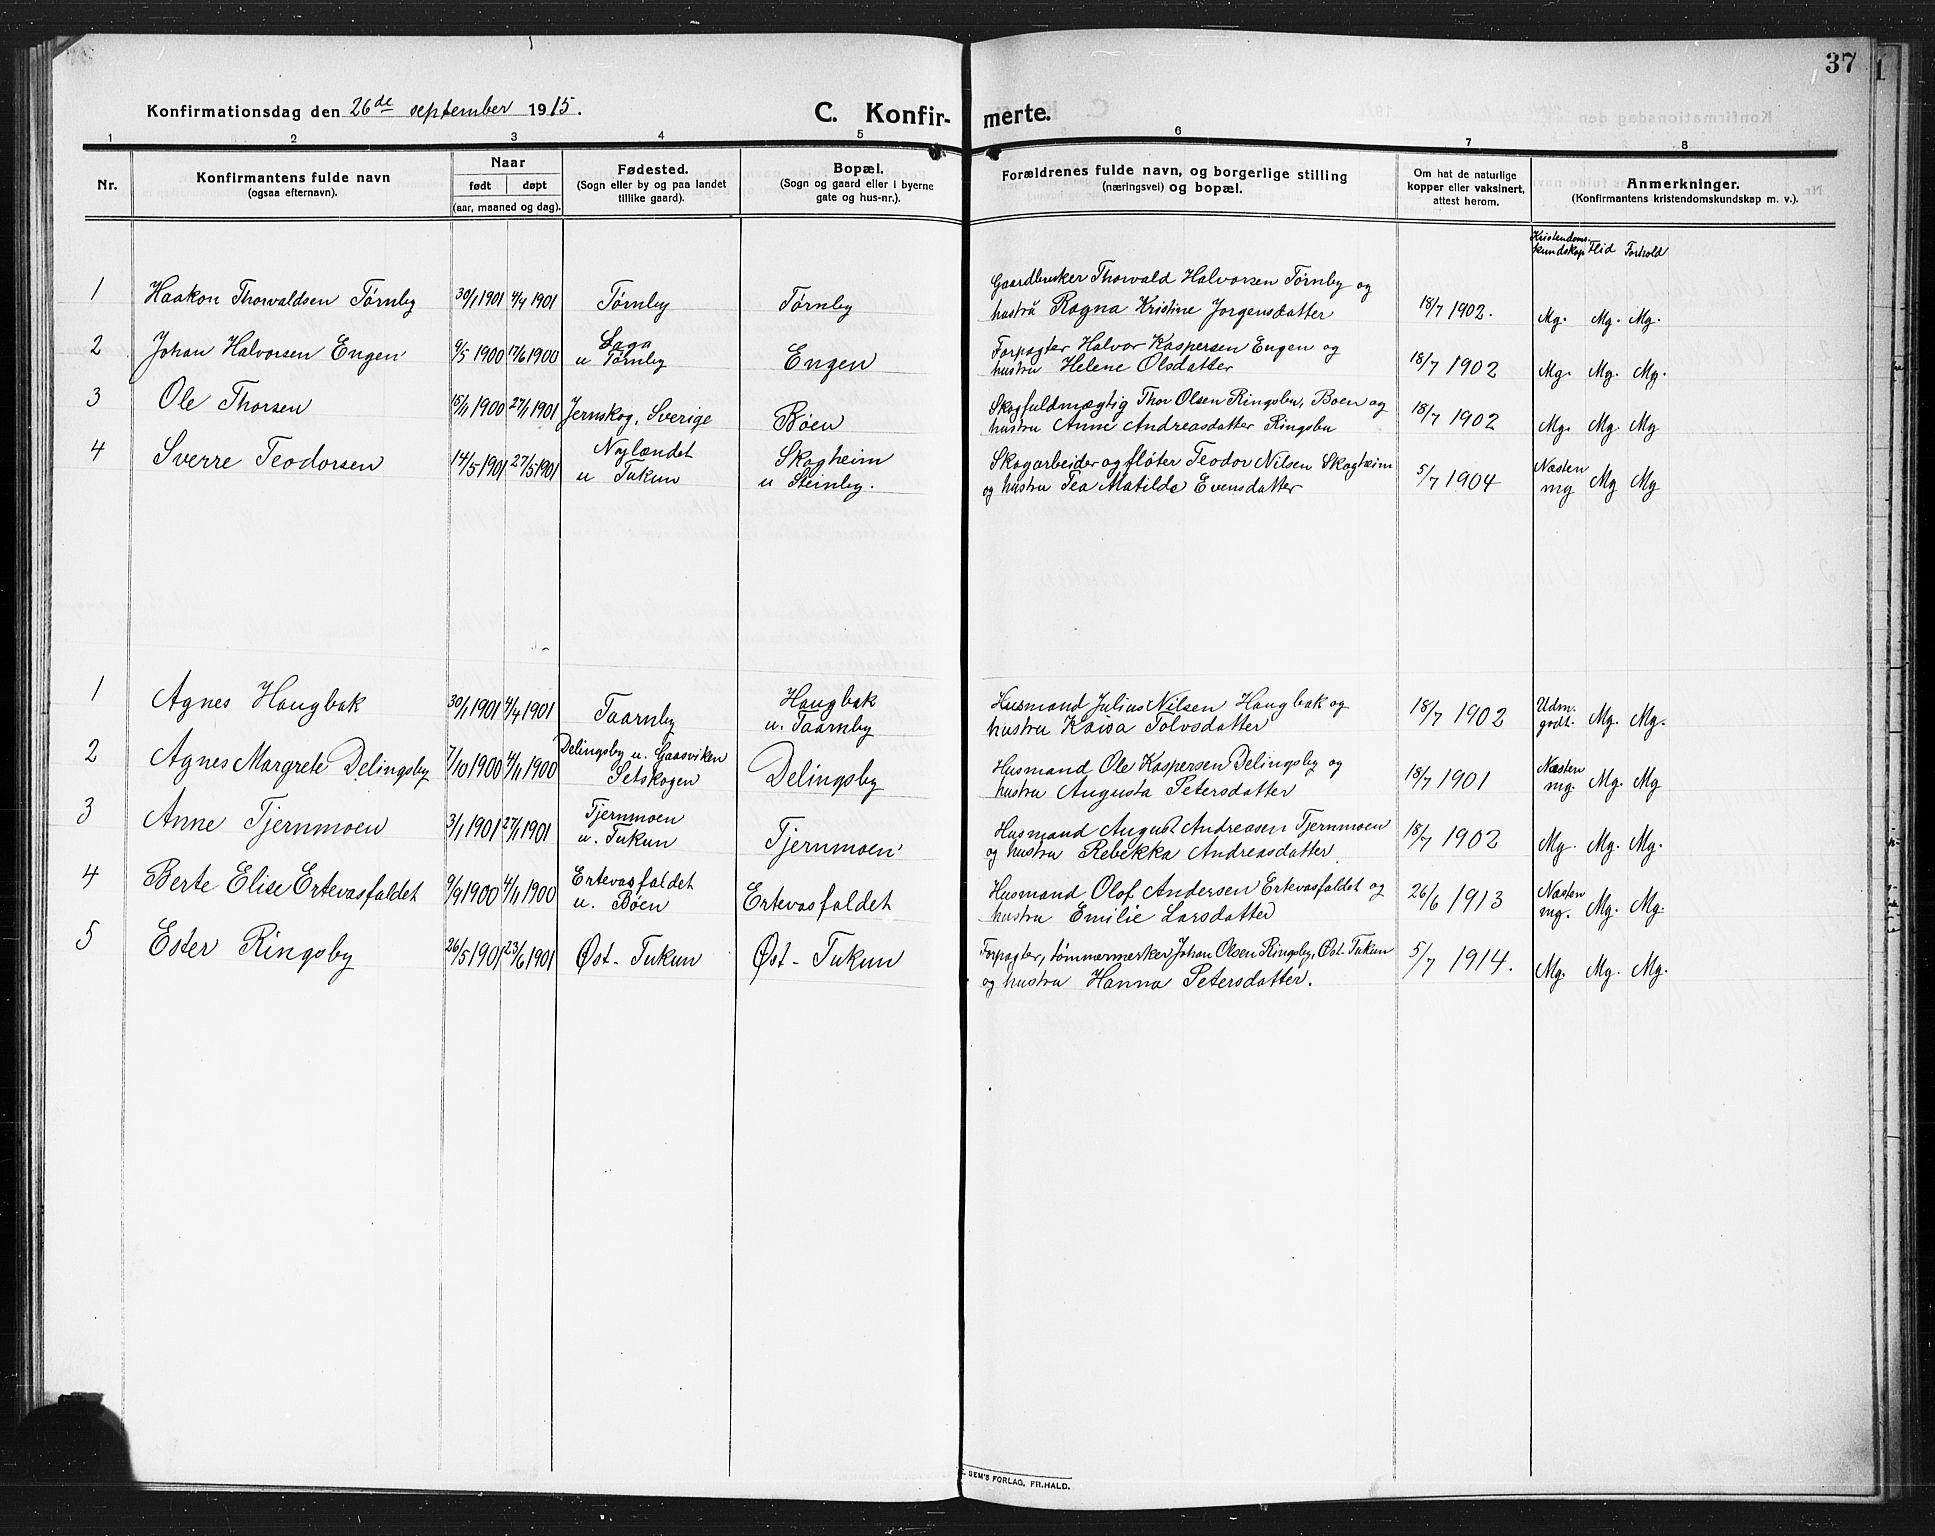 37
Konfirmationsdag den 26de september 1915.
C. Konfir- merte.
1 2 3 4 5 6 7 8
Nr.
Konfirmantens fulde navn
(ogsaa efternavn).
Naar
født døpt
(aar, maaned og dag).
Fødested.
(Sogn eller by og paa landet
tillike gaard).
Bopæl.
(Sogn og gaard eller i byerne
gate og hus-nr.).
Forældrenes fulde navn, og borgerlige stilling
(næringsvei) og bopæl.
Om hat de naturlige
kopper eller vaksinert,
attest herom.
Anmerkninger.
(Konfirmantens kristendomskundskap m. v.).
Kristendoms-
kundskap Flid Forhold
1 Haakon Thorvaldsen Tørnby 30/1 1901 4/4 1901 Tørnby Tørnby
Gaardbruker Thorvald Halvorsen Tørnby og
hustru Ragna Kristine Jorgensdatter 18/7 1902. Mg. Mg. Mg.
2 Johan Halvorsen Engen 9/5 1900 17/6 1900 Saga
u Tørnby Engen
Forpagter Halvor Kaspersen Engen og
hustru Helene Olsdatter 18/7 1902 Mg. Mg. Mg.
3 Ole Thorsen 15/11 1900 27/1 1901 Jernskog, Sverige Bøen
Skogfuldmægtig Thor Olsen Ringsby, Boen og
hustru Anne Andreasdatter Ringsby 18/7 1902 Mg. Mg. Mg
4 Sverre Teodorsen 14/5 1901 27/5 1901 Nylændet
u Tukun Skogheim
u Steinby.
Skogarbeider og fløter Teodor Nilsen Skogheim
og hustru Tea Matilde Evensdatter 5/7 1904 Næsten
mg Mg Mg
1 Agnes Haugbak 30/1 1901 4/4 1901 Taarnby Haugbak
u. Taarnby
Husmand Julius Nilsen Haugbak og
hustru Kaisa Tolvsdatter 18/7 1902 Udm.
godt. Mg. Mg.
2 Agnes Margrete Delingsby 7/10 1900 4/11 1900 Delingsby u. Gaasviken
Setskogen Delingsby
Husmand Ole Kaspersen Delingsby og
hustru Augusta Petersdatter 18/7 1901 Næsten
mg. Mg. Mg
3 Anne Tjernmoen 3/1 1901 27/1 1901 Tjernmoen
u. Tukun Tjernmoen
Husmand August Andreasen Tjernmoen
og hustru Rebekka Andreasdatter 18/7 1902 Mg. Mg. Mg.
4 Berte Elise Ertevasfaldet 9/9 1900 4/11 1900 Ertevasfaldet
u. Bøen Ertevasfaldet
Husmand Olof Andersen Ertevasfaldet og
hustru Emilie Larsdatter 26/6 1913 Næsten
mg. Mg. Mg.
5 Ester Ringsby 26/5 1901 23/6 1901 Øst-Tukun Øst-Tukun
Forpagter, tømmermerker Johan Olsen Ringsby, Øst-Tukun
og hustru Hanna Petersdatter. 5/7 1914. Mg. Mg. Mg.
SEM'S FORLAG, FR.HALD.